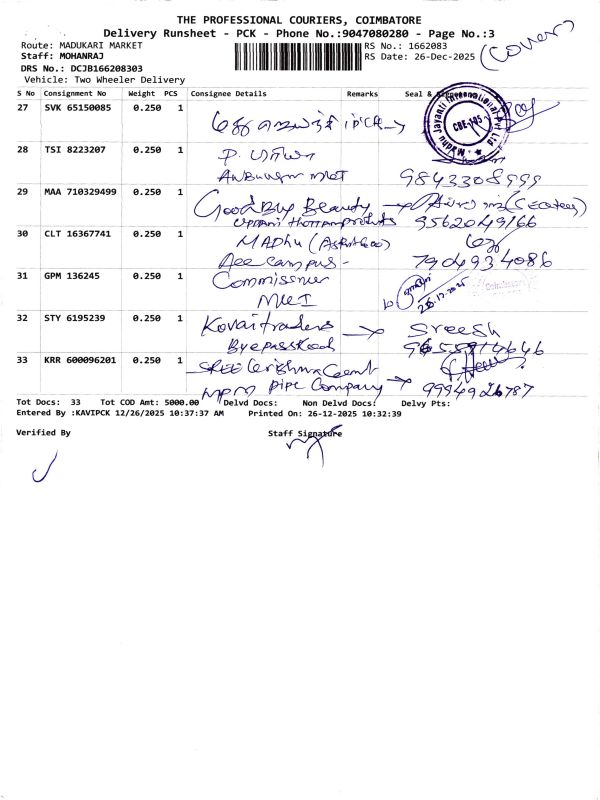 THE PROFESSIONAL COURIERS, COIMBATORE
Delivery Runsheet - PCK - Phone No.:9047080280 - Page No.:3
Route: MADUKARI MARKET
RS No.: 1662083
(Cover)
Staff: MOHANRAJ
RS Date: 26-Dec-2025
DRS No.: DCJB166208303
Vehicle: Two Wheeler Delivery
S No Consignment No Weight PCS Consignee Details Remarks Seal &
27 SVK 65150085 0.250 1
Madhu Jayanti International Pvt Ltd
CBE-105
28 TSI 8223207 0.250 1
9843308999
29 MAA 710329499 0.250 1 Good Buy Beauty
9562049166
30 CLT 16367741 0.250 1 MADhu
Aee Campus - 7904934086
31 GPM 136245 0.250 1 Commissoner
26.12.2025
32 STY 6195239 0.250 1 Kovai traders → Sreesh
Byepass Road
33 KRR 600096201 0.250 1 SREE Crishna
MPM Pipe Company → 9994926787
Tot Docs: 33 Tot COD Amt: 5000.00 Delvd Docs: Non Delvd Docs: Delvy Pts:
Entered By :KAVIPCK 12/26/2025 10:37:37 AM Printed On: 26-12-2025 10:32:39
Verified By Staff Signature